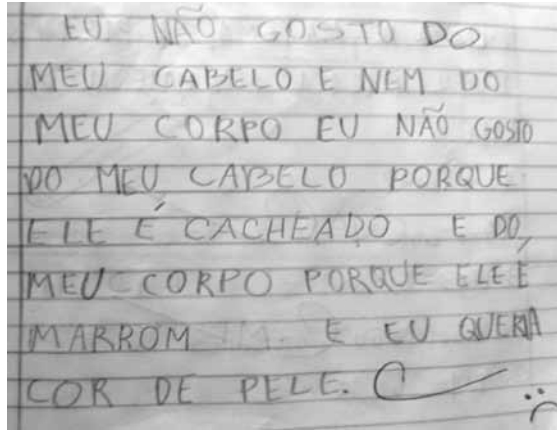 EU NÃO GOSTO DO
MEU CABELO E NEM DO
MEU CORPO EU NÃO GOSTO
DO MEU CABELO PORQUE
ELE É CACHEADO E DO
MEU CORPO PORQUE ELE É
MARROM E EU QUERIA
COR DE PELE.